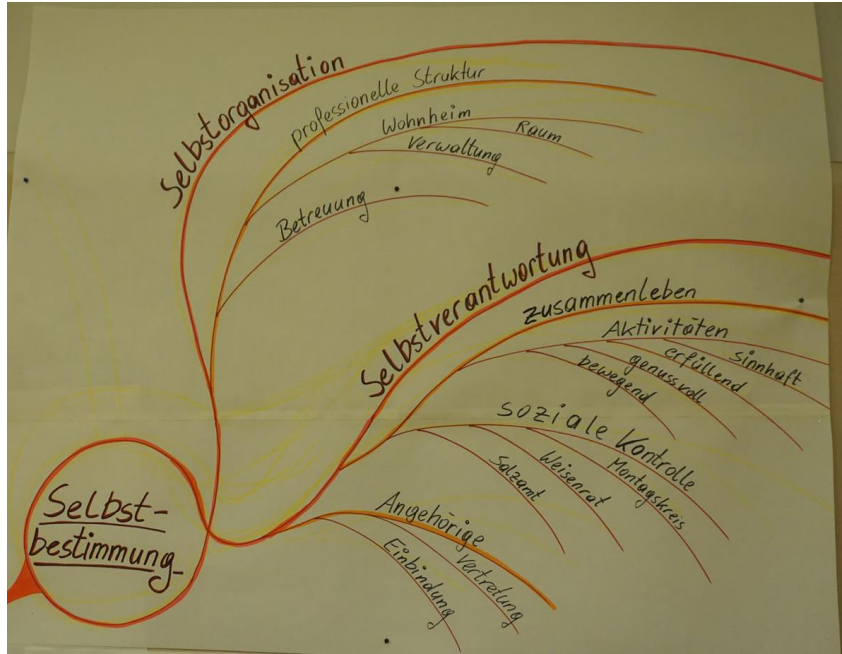 Selbstorganisation
professionelle Struktur
Wohnheim
Raum
Verwaltung
Betreuung
Selbstverantwortung
zusammenleben
Aktivitäten
sinnhaft
erfüllend
genussvoll
bewegend
soziale Kontrolle
Montagskreis
Weisenrat
Salzamt
Angehörige
Vertretung
Einbindung
Selbst-
bestimmung